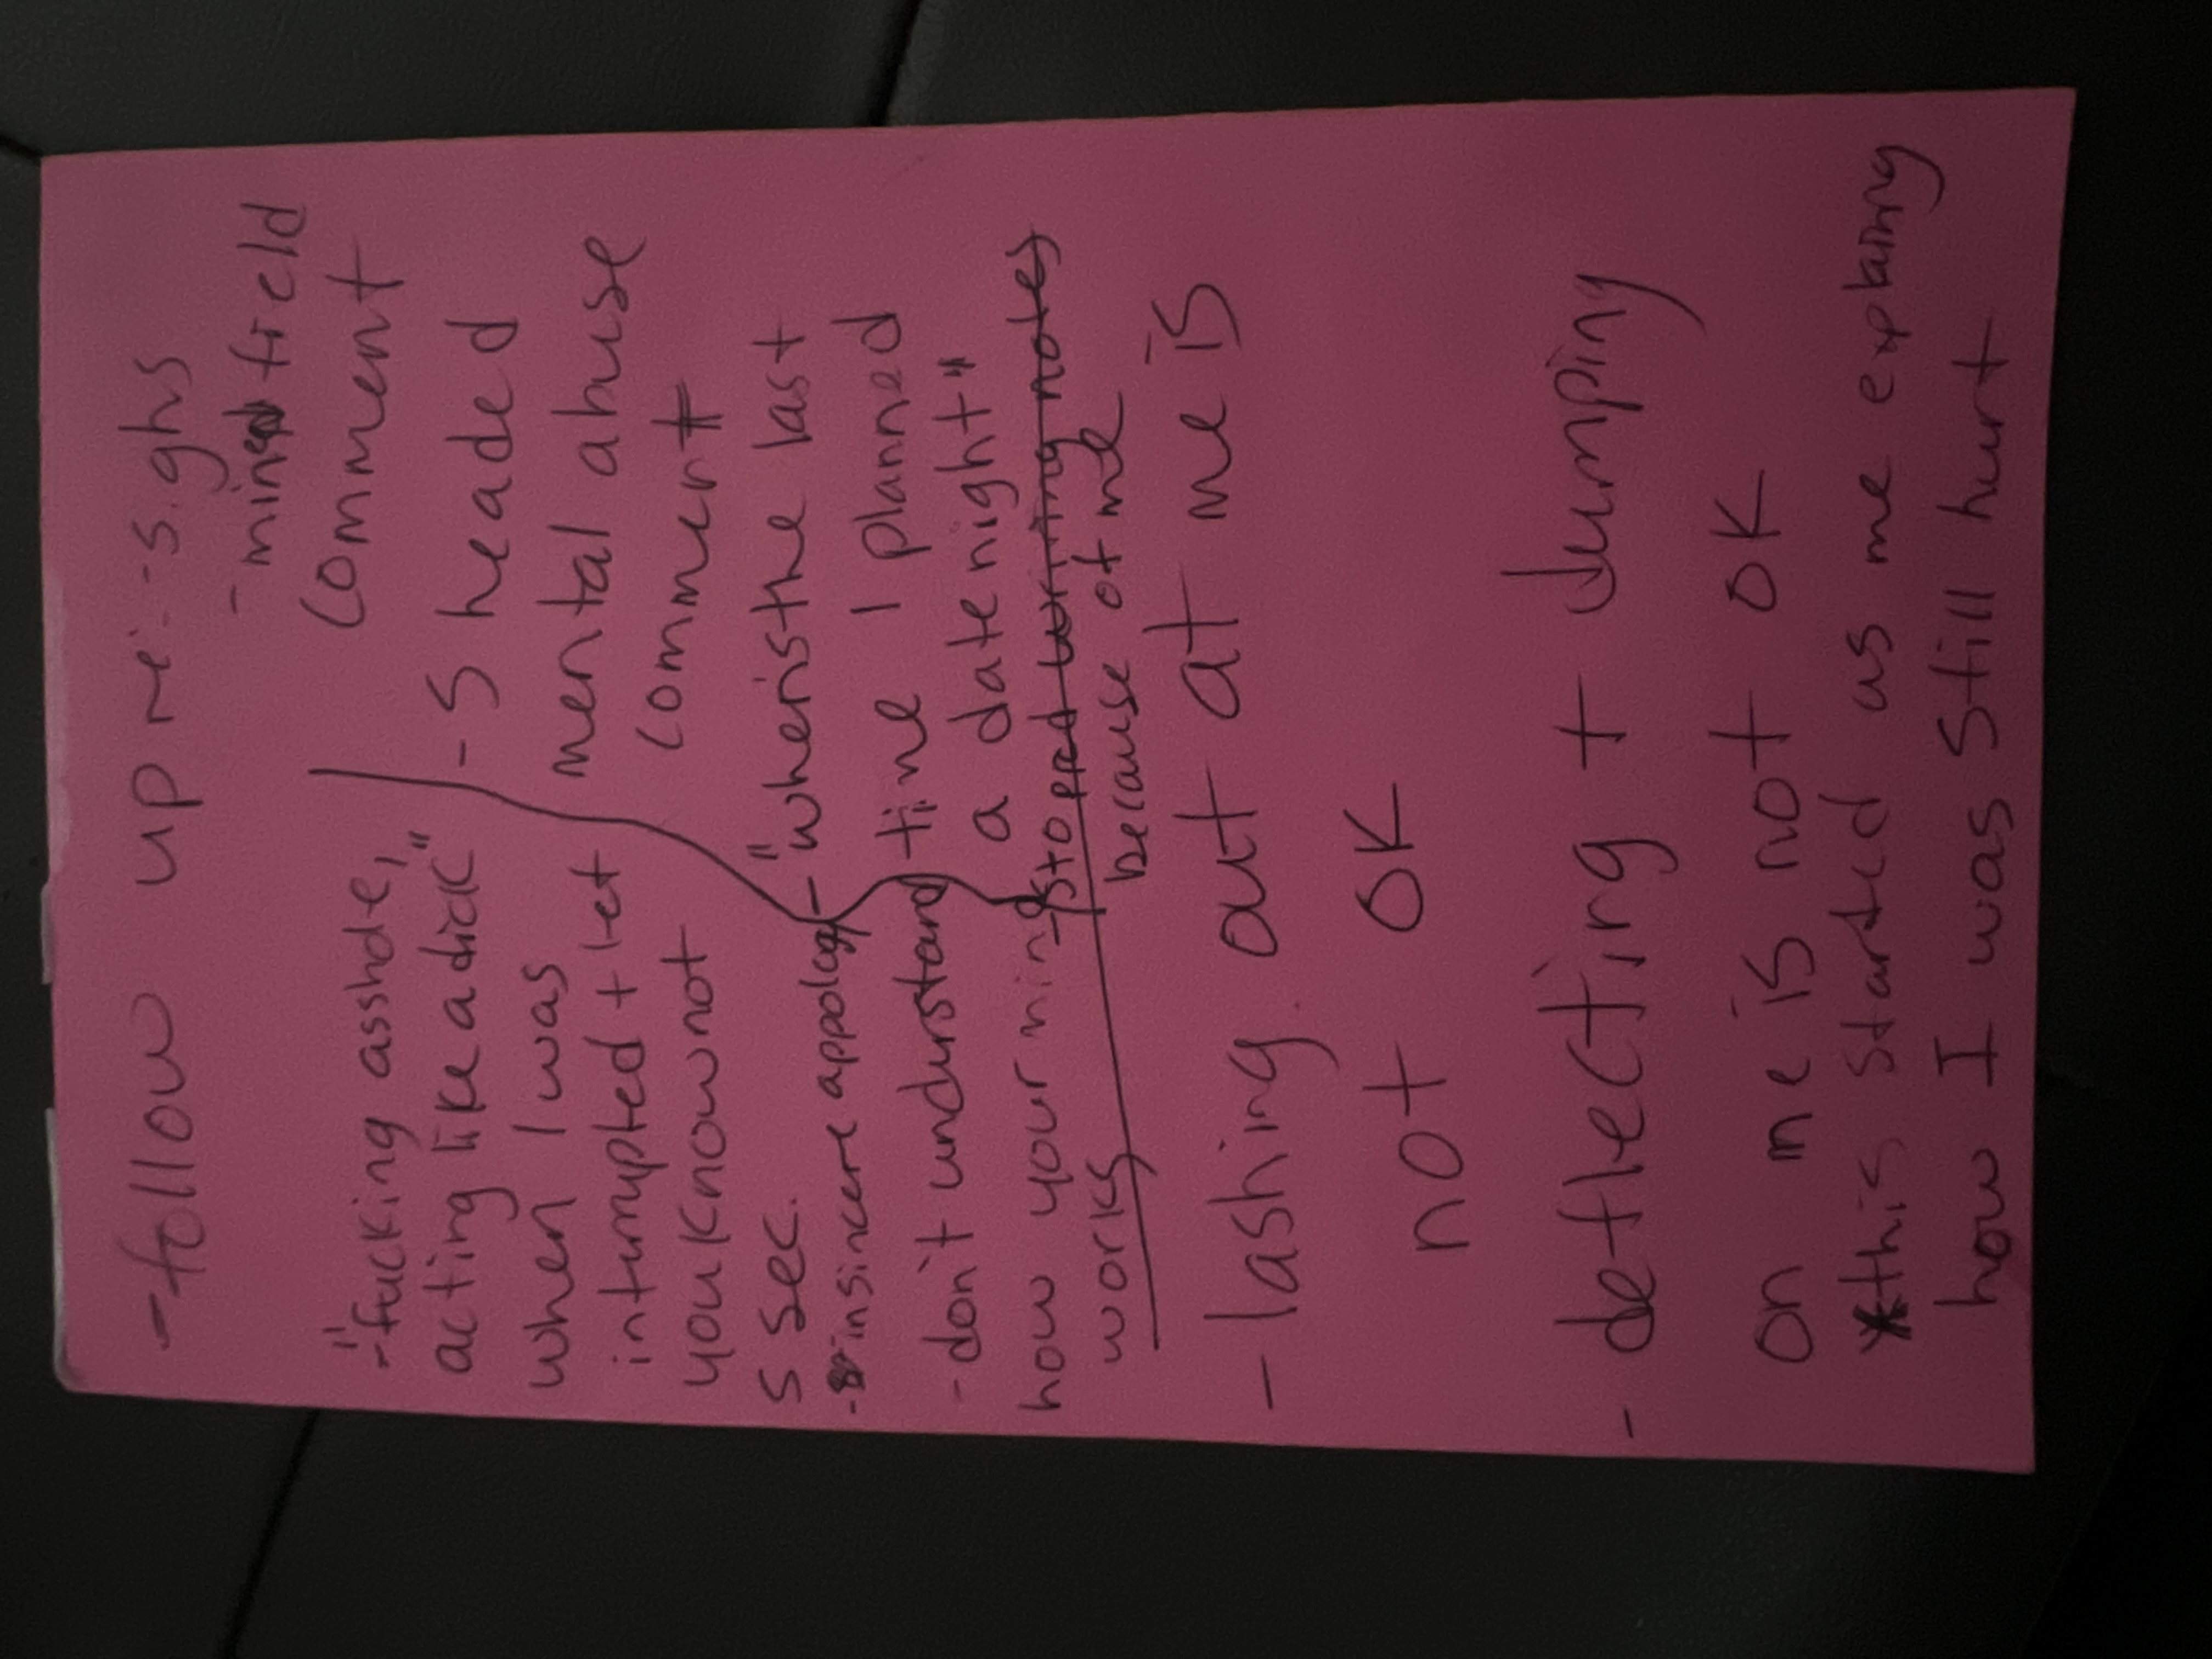 -follow up re: -sighs
- mine field
comment
"
-fucking asshole,
acting like a dick"
when I was
interrupted + let
you know not
5 sec.
- insincere appology
- don't understand
how your mind
works
- 5 headed
mental abuse
comment
- "when's the last
time I planned
a date night"
- stopped writing notes
because of me
- lashing out at me is
not OK
- deflecting + dumping
on me is not OK
*this started as me explaining
how I was still hurt